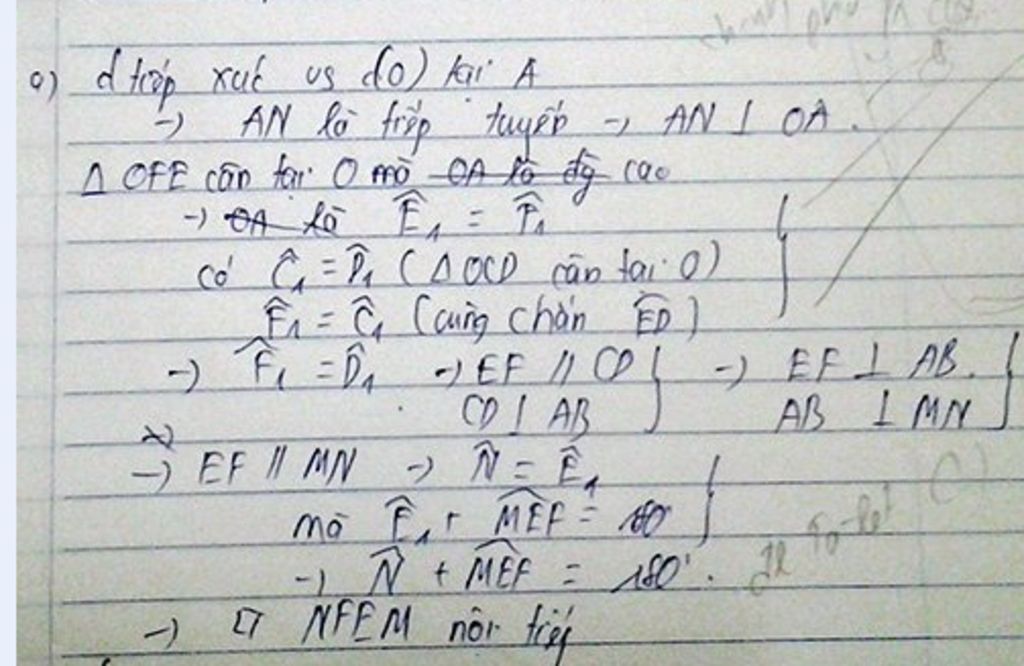 a) d tiếp xúc vs (O) tại A
-> AN là tiếp tuyến -> AN ⊥ OA.
Δ OFE cân tại O mà OA là đg cao
-> OA là Ê₁ = F̂₁
có Ĉ₁ = D̂₁ (Δ OCD cân tại O)
F̂₁ = Ĉ₁ (cùng chắn ED)
-> F̂₁ = D̂₁ -> EF // CD } -> EF ⊥ AB. }
CD ⊥ AB AB ⊥ MN
-> EF // MN -> N̂ = Ê₁
mà Ê₁ + MEF = 180°
-> N̂ + MEF = 180°.
-> NFEM nội tiếp